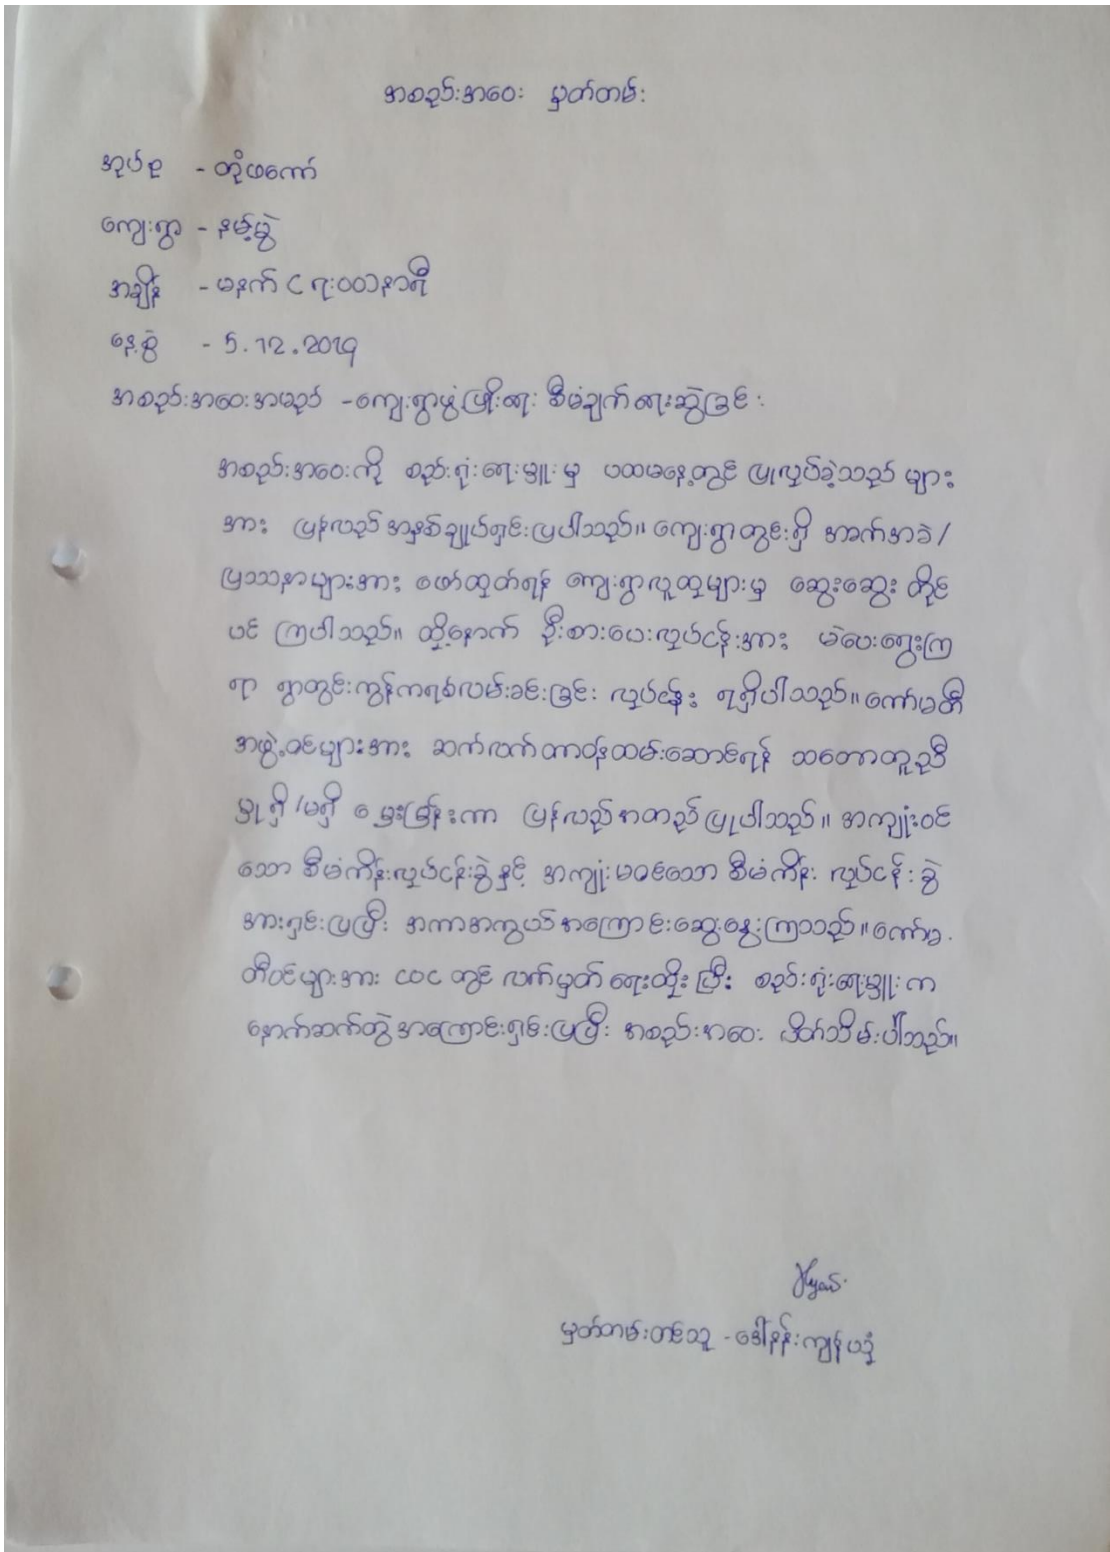 အစည်းအဝေး မှတ်တမ်း
အုပ်စု - တိုဖကော်
ကျေးရွာ - နမ့်မွဲ
အချိန် - မနက် (၉:၀၀)နာရီ
နေ့စွဲ - 5.12.2019
အစည်းအဝေးအမည် - ကျေးရွာဖွံ့ဖြိုးရေး စီမံချက်ရေးဆွဲခြင်း
အစည်းအဝေးကို စည်းရုံးရေးမှူးမှ ပထမနေ့တွင် ပြုလုပ်ခဲ့သည် များ
အား ပြန်လည် အနှစ်ချုပ်ရှင်းပြပါသည်။ ကျေးရွာတွင်းရှိ အခက်အခဲ/
ပြဿနာများအား ဖော်ထုတ်ရန် ကျေးရွာလူထုများမှ ဆွေးဆွေး တိုင်
ပင် ကြပါသည်။ ထို့နောက် ဦးစားပေးလုပ်ငန်းအား မဲပေးရွေးကြ
ရာ ရွာတွင်းကွန်ကရစ်လမ်းခင်းခြင်း လုပ်ငန်း ရရှိပါသည်။ ကော်မတီ
အဖွဲ့ဝင်များအား ဆက်လက်တာဝန်ထမ်းဆောင်ရန် သဘောတူညီ
မှု ရှိ/မရှိ မေးမြန်းကာ ပြန်လည်အတည်ပြုပါသည်။ အကျုံးဝင်
သော စီမံကိန်းလုပ်ငန်းခွဲ နှင့် အကျုံးမဝင်သော စီမံကိန်း လုပ်ငန်းခွဲ
အားရှင်းပြပြီး အကာအကွယ်အကြောင်းဆွေးနွေးကြသည်။ ကော်မ
တီဝင်များအား ငဝင တွင် လက်မှတ် ရေးထိုးပြီး စည်းရုံးရေးမှူး က
နောက်ဆက်တွဲအကြောင်းရှင်းပြပြီး အစည်းအဝေး ပိတ်သိမ်းပါသည်။
မှတ်တမ်းတင်သူ - ဒေါ်နန်းကျန်ယုံ